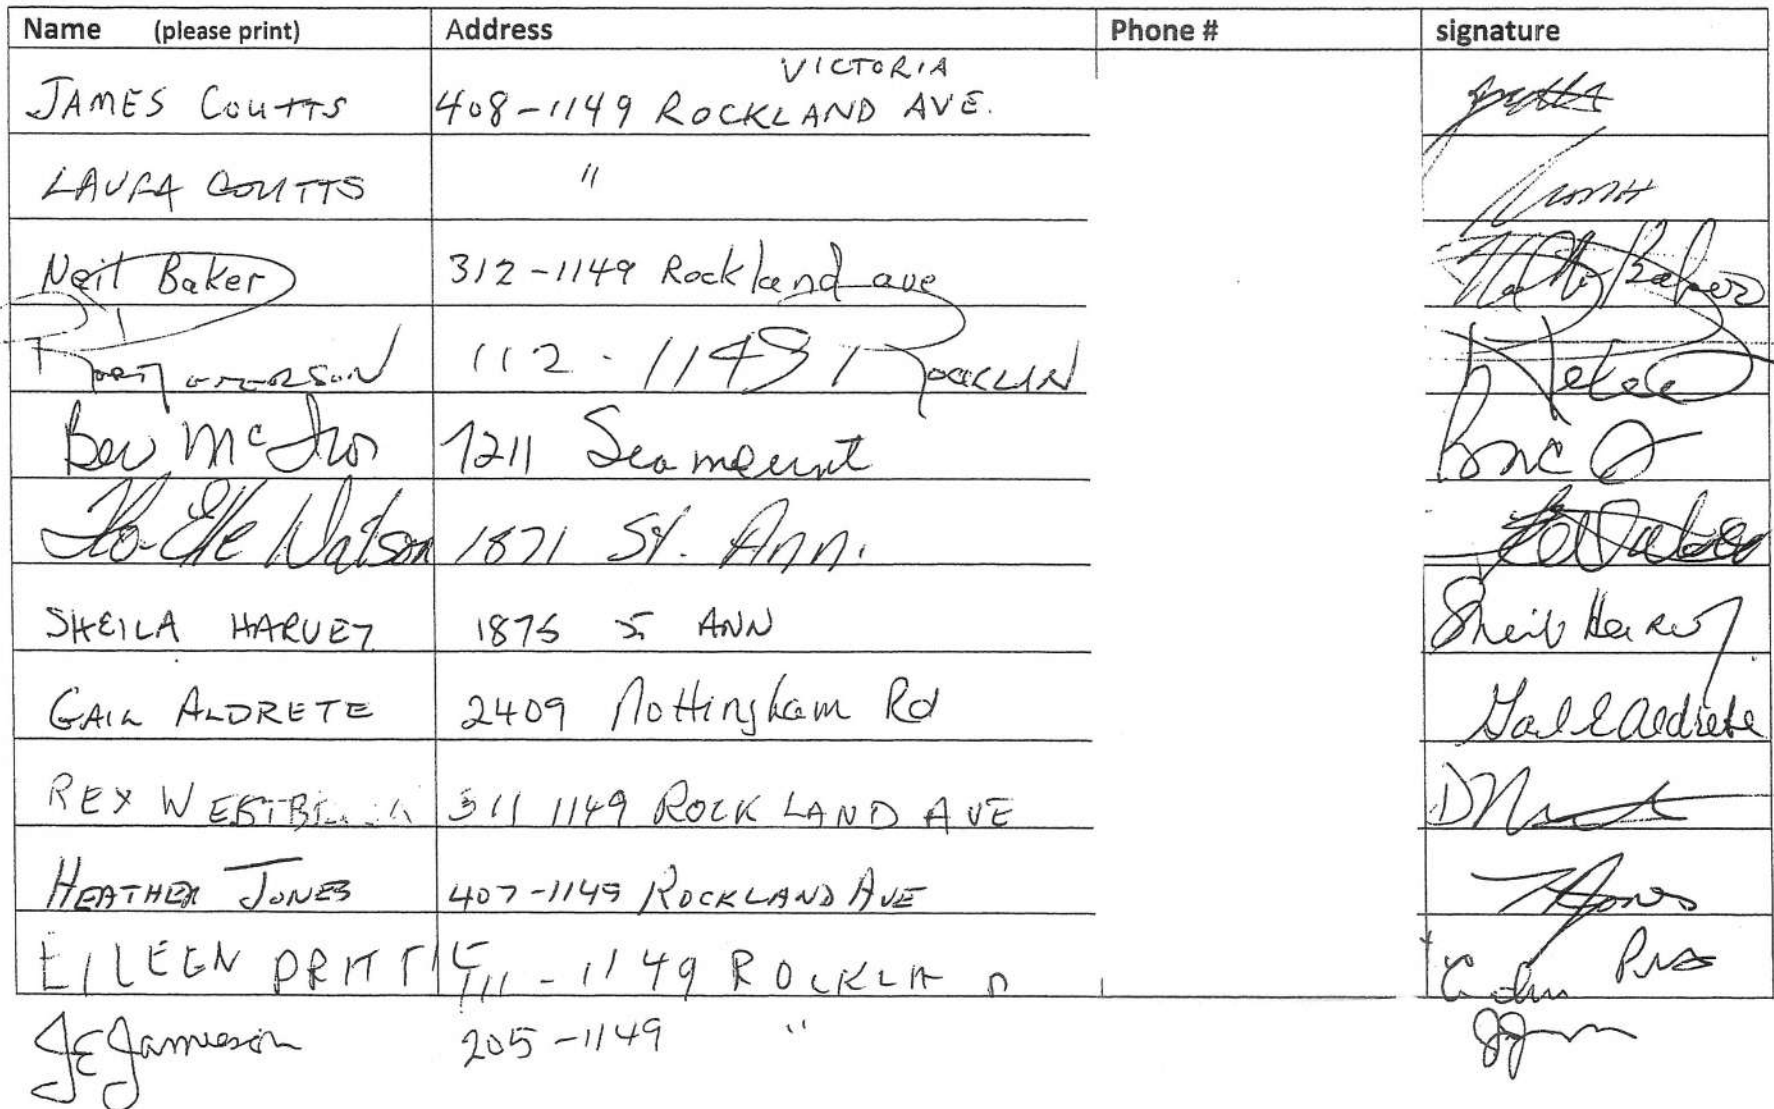 Name (please print) Address Phone # signature
VICTORIA
JAMES COUTTS 408-1149 ROCKLAND AVE.
LAURA COUTTS "
Neil Baker 312-1149 Rockland ave Baker
112 - 1149
Bev 1211 Seamount
Watson 1871 St. Ann.
SHEILA HARVEY 1875 S ANN Sheila Harvey
GAIL ALDRETE 2409 Nottingham Rd Gail E Aldrete
REX 311 1149 ROCKLAND AVE
HEATHER JONES 407-1149 ROCKLAND AVE HJones
EILEEN PRITTIE 111-1149
JE Jamieson 205-1149 "